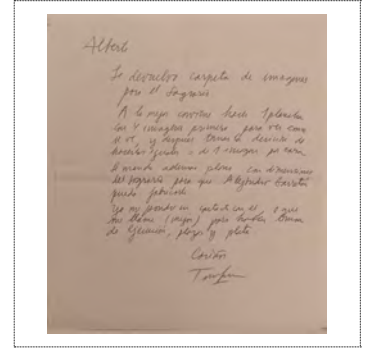 Alberto
Te devuelvo carpeta de imagenes
para el Sagrario
A lo mejor conviene hacer 1 plancha
con 4 imagenes primero para ver como
y despues tomas la decisión de
hacerlas iguales o de 1 imagen por cara.
Te mando ademas plano con dimensiones
del sagrario para que Alejandro
pueda fabricarlo.
Yo me pondré en contacto con el, o que
me llame (mejor) para hablar temas
de ejecucion, plazos y plata.
Cariños